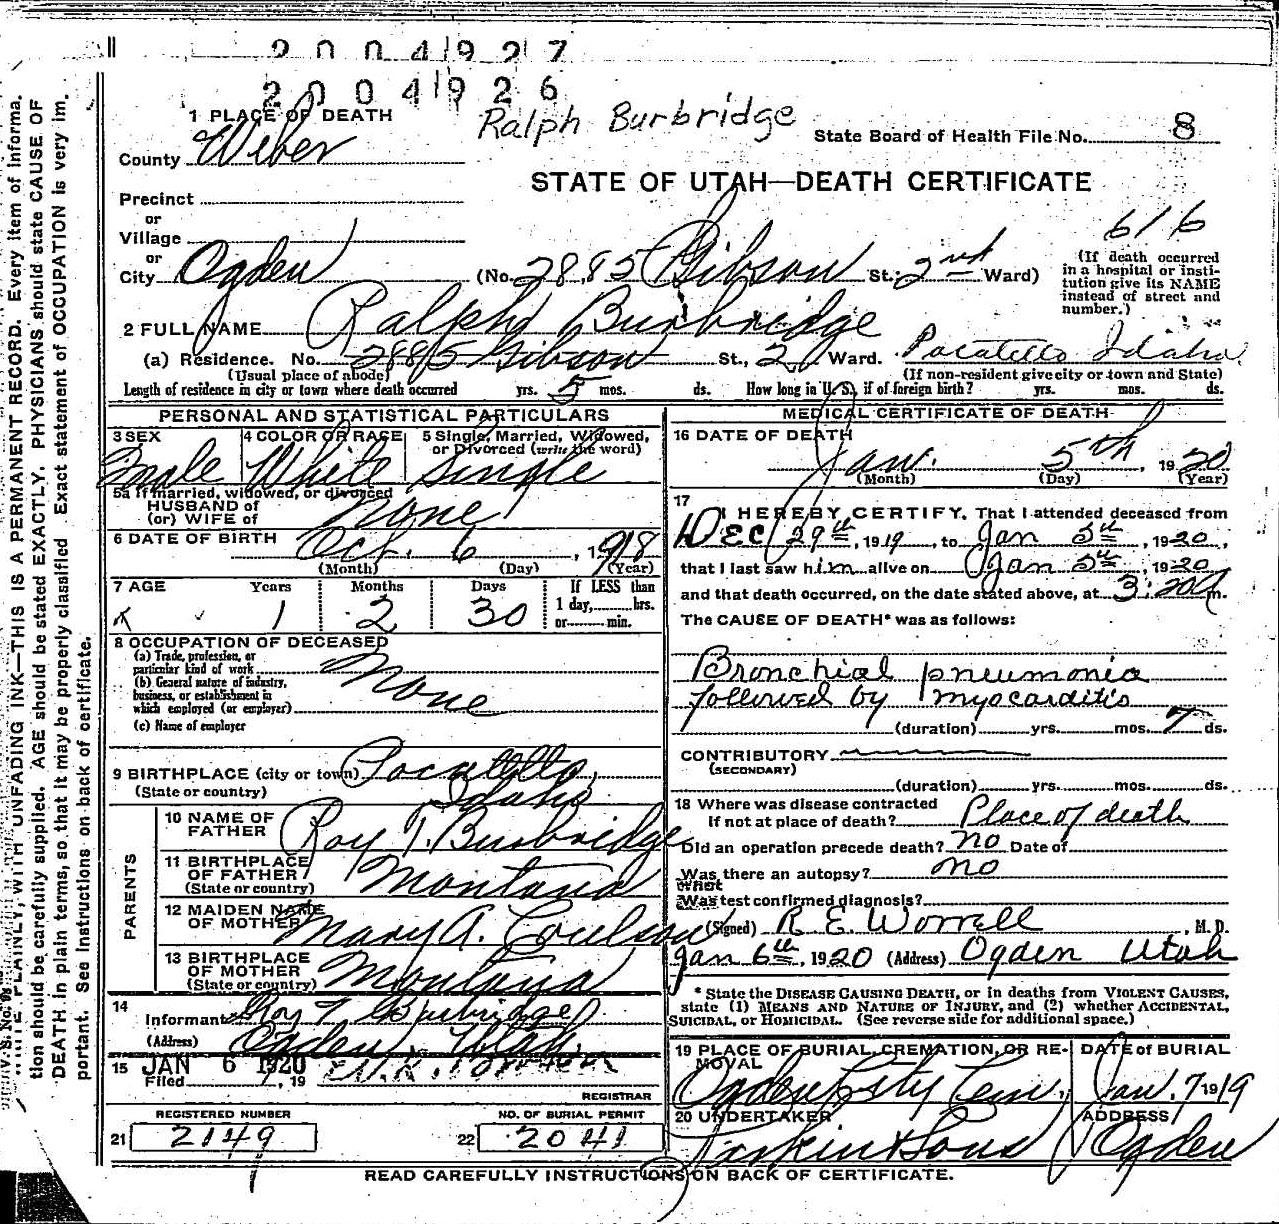 2004927
2004926
Ralph Burbridge
State Board of Health File No. 8
1 PLACE OF DEATH
County Weber
STATE OF UTAH—DEATH CERTIFICATE
Precinct
or
Village
or
City Ogden (No. 2885 Gibson St. 2nd Ward)
616
(If death occurred in a hospital or institution give its NAME instead of street and number.)
2 FULL NAME Ralph Burbridge
(a) Residence. No. 2885 Gibson St., 2 Ward. Pocatello Idaho
(Usual place of abode) (If non-resident give city or town and State)
Length of residence in city or town where death occurred yrs. 5 mos. ds. How long in U.S., if of foreign birth? yrs. mos. ds.
PERSONAL AND STATISTICAL PARTICULARS
3 SEX Male
4 COLOR OR RACE White
5 Single, Married, Widowed, or Divorced (write the word) Single
5a If married, widowed, or divorced
HUSBAND of
(or) WIFE of None
6 DATE OF BIRTH Oct. 6, 1918
(Month) (Day) (Year)
7 AGE Years 1 Months 2 Days 30 If LESS than 1 day, hrs. or min.
8 OCCUPATION OF DECEASED
(a) Trade, profession, or particular kind of work None
(b) General nature of industry, business, or establishment in which employed (or employer)
(c) Name of employer
9 BIRTHPLACE (city or town) Pocatello,
(State or country) Idaho
PARENTS
10 NAME OF FATHER Roy T. Burbridge
11 BIRTHPLACE OF FATHER (State or country) Montana
12 MAIDEN NAME OF MOTHER Mary A. Coulson
13 BIRTHPLACE OF MOTHER (State or country) Montana
14
Informant Roy T Burbridge
(Address) Ogden, Utah.
15 JAN 6 1920
Filed , 19
REGISTRAR
REGISTERED NUMBER NO. OF BURIAL PERMIT
21 2149 22 2041
MEDICAL CERTIFICATE OF DEATH
16 DATE OF DEATH
Jan. 5th, 1920
(Month) (Day) (Year)
17 I HEREBY CERTIFY, That I attended deceased from
Dec 29th, 1919, to Jan 5th, 1920,
that I last saw him alive on Jan 5th, 1920
and that death occurred, on the date stated above, at 3:20 m.
The CAUSE OF DEATH* was as follows:
Bronchial pneumonia
followed by myocarditis
(duration) yrs. mos. 7 ds.
CONTRIBUTORY
(SECONDARY)
(duration) yrs. mos. ds.
18 Where was disease contracted
If not at place of death? Place of death
Did an operation precede death? no Date of
Was there an autopsy? no
What test confirmed diagnosis?
(Signed) R. E. Worrell, M. D.
Jan 6th, 1920 (Address) Ogden Utah
* State the DISEASE CAUSING DEATH, or in deaths from VIOLENT CAUSES,
state (1) MEANS AND NATURE OF INJURY, and (2) whether ACCIDENTAL,
SUICIDAL, or HOMICIDAL. (See reverse side for additional space.)
19 PLACE OF BURIAL, CREMATION, OR REMOVAL DATE of BURIAL
Ogden City Cem. Jan. 7 1919
20 UNDERTAKER ADDRESS
& Sons Ogden
READ CAREFULLY INSTRUCTIONS ON BACK OF CERTIFICATE.
PLAINLY, WITH UNFADING INK—THIS IS A PERMANENT RECORD. Every item of informa-
tion should be carefully supplied. AGE should be stated EXACTLY. PHYSICIANS should state CAUSE OF
DEATH in plain terms, so that it may be properly classified. Exact statement of OCCUPATION is very im-
portant. See Instructions on back of certificate.